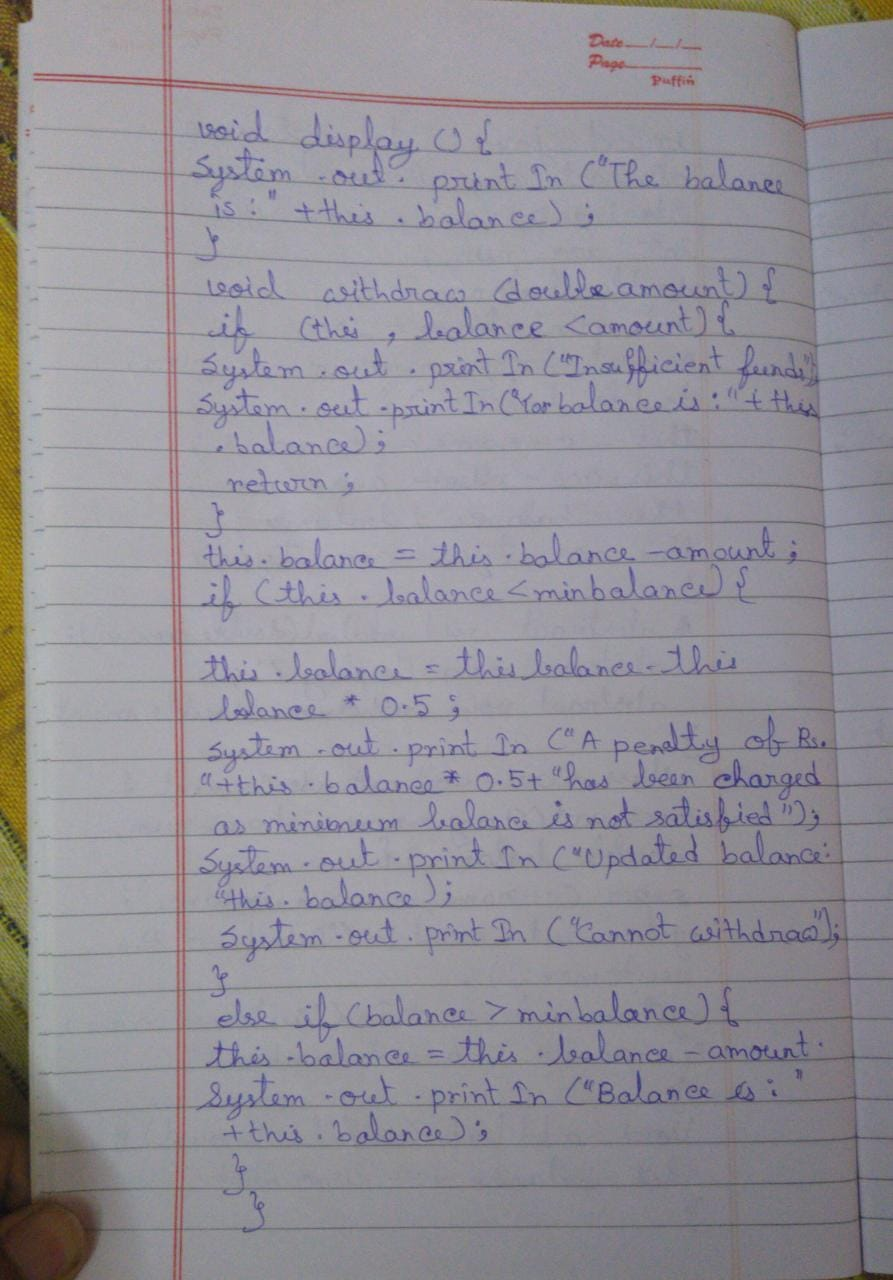 Date __/__/__
Page ______
Puffin
void display () {
System . out . print In ("The balance
is : " + this . balance) ;
}
void withdraw (double amount) {
if (this , balance < amount) {
System . out . print In ("Insufficient funds");
System . out . print In ("Yor balance is : " + this
. balance) ;
return ;
}
this . balance = this . balance - amount ;
if (this . balance < minbalance) {
this . balance = this balance - this
balance * 0.5 ;
System . out . print In (" A penalty of Rs.
" + this . balance * 0.5 + "has been charged
as minimum balance is not satisfied ") ;
System . out . print In ("Updated balance :
"this . balance) ;
System . out . print In ("Cannot withdraw") ;
}
else if (balance > minbalance) {
this . balance = this . balance - amount .
System . out . print In ("Balance is : "
+ this . balance) ;
}
}